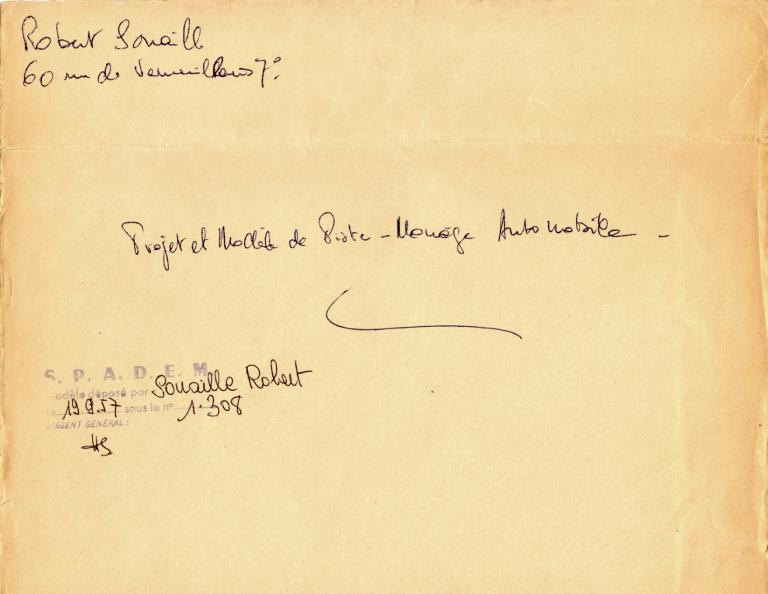 Robert Souaille
60 rue de Verneuil Paris 7e
Projet et Modèle de Piste - Manège Automobile -
S. P. A. D. E. M
modèle déposé par Souaille Robert
le 19.9.57 sous le n° 1.308
L'AGENT GÉNÉRAL: